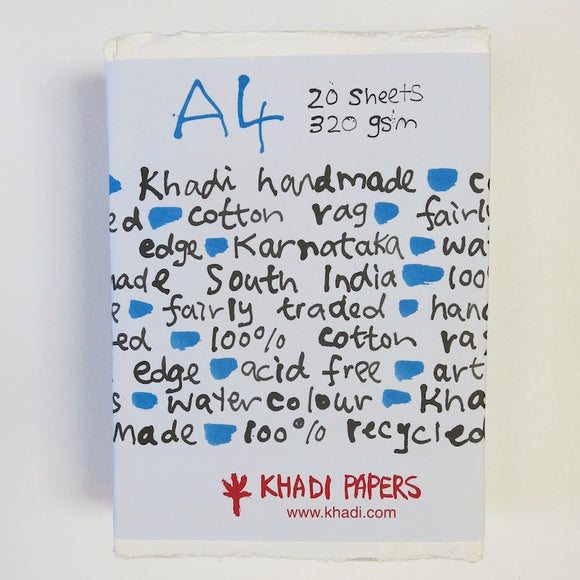 A4 20 sheets
320 gsm
Khadi handmade c
ed cotton rag fairly
edge Karnataka wa
made South India 100
e fairly traded hand
ed 100% cotton rag
edge acid free art
s watercolour Kha
made 100% recycled
KHADI PAPERS
www.khadi.com